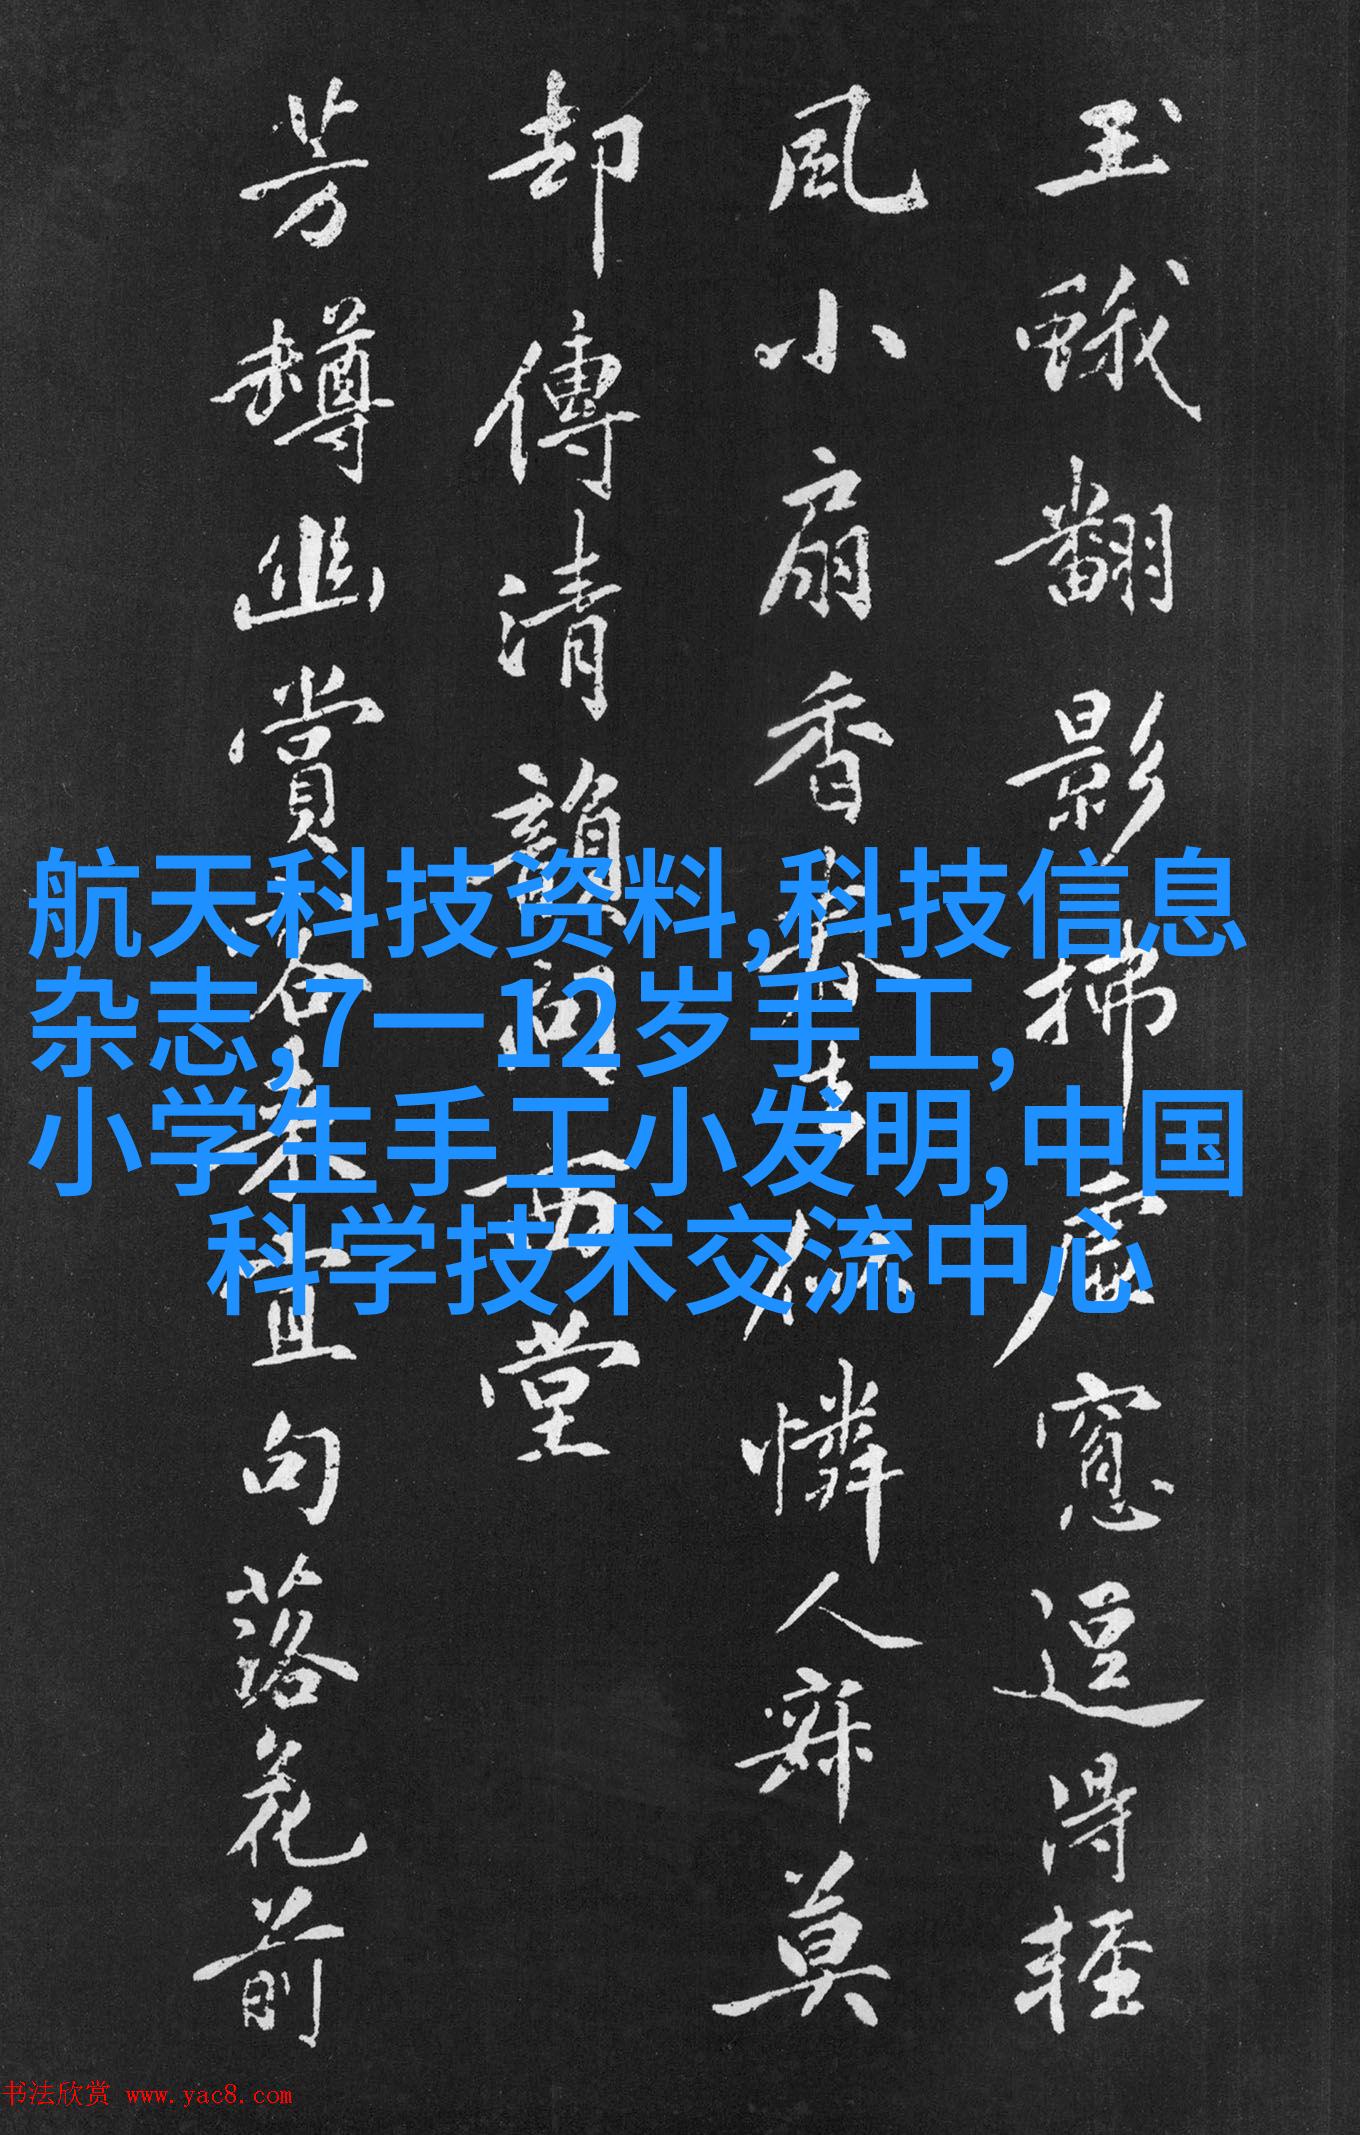 玉蛾翻影掃虛窓逗得輕
風小扇香春去憐人寂莫
却傳清韻問西堂
芳樽幽賞宜句落花前
航天科技资料,科技信息
杂志,7一12岁手工,
小学生手工小发明,中国
科学技术交流中心
书法欣赏 www.yac8.com